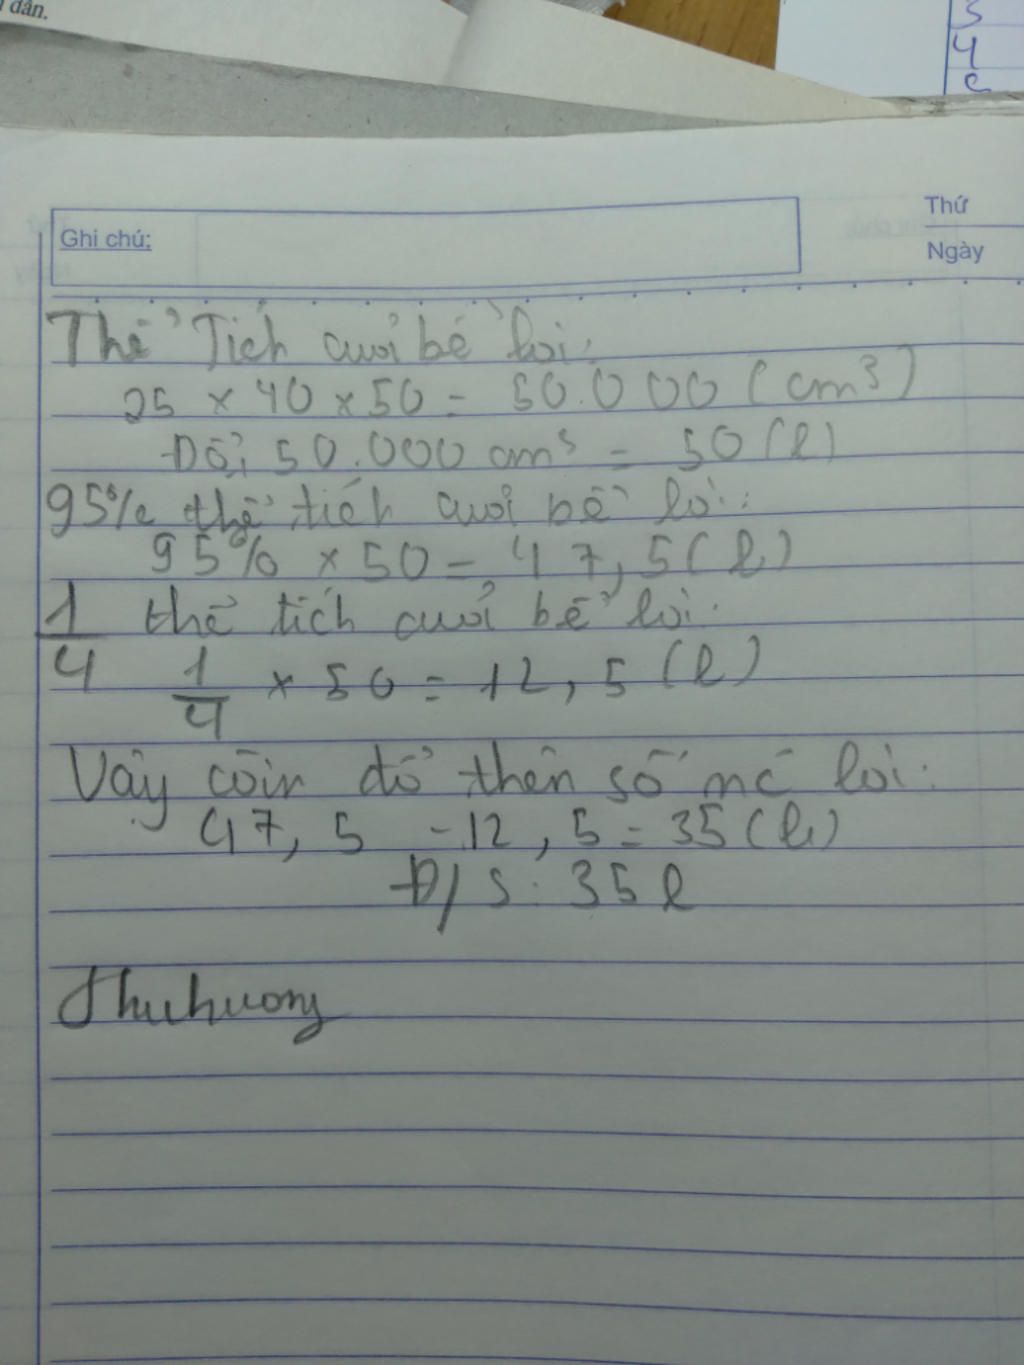 dân.
3
4
Thứ
Ghi chú:
Ngày
Thể Tích cuơi bể lời:
25 × 40 × 50 = 50.000 (cm³)
Đổi 50.000 cm³ = 50 (l)
95% thể tích cuơi bể lò:
95% × 50 = 47,5 (l)
1/4 thể tích cuơi bể lời:
1/4 × 50 = 12,5 (l)
Vậy còin đổ thên số nć lời:
47,5 - 12,5 = 35 (l)
Đ/S: 35 l
Thuhuong